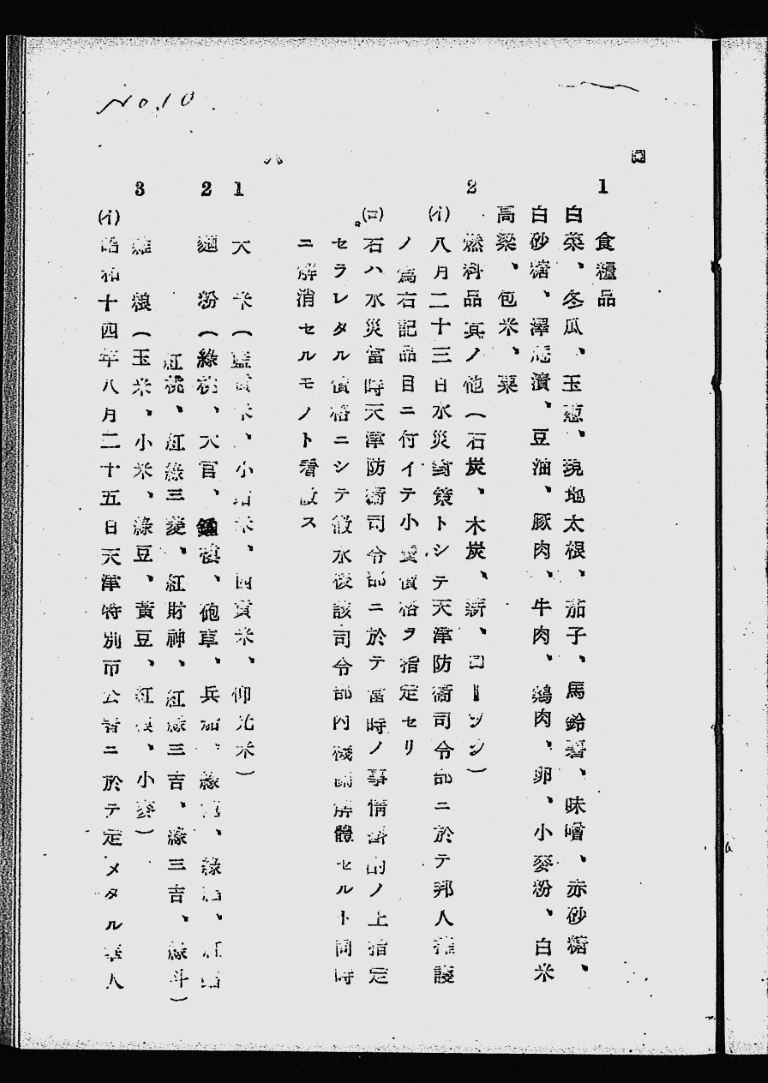 No.10
1 食糧品
白菜、冬瓜、玉葱、現地大根、茄子、馬鈴薯、味噌、赤砂糖、
白砂糖、澤庵漬、豆油、豚肉、牛肉、鷄肉、卵、小麥粉、白米
高粱、包米、粟
2 燃料品其ノ他(石炭、木炭、薪、ローソク)
(イ) 八月二十三日水災對策トシテ天津防衞司令部ニ於テ邦人擁護
ノ爲右記品目ニ付イテ小賣價格ヲ指定セリ
(ロ) 右ハ水災當時天津防衞司令部ニ於テ當時ノ事情斟酌ノ上指定
セラレタル價格ニシテ徹水後該司令部內機關解體セルト同時
ニ解消セルモノト看做ス
八
1 大米(藍貢米、小站米、西貢米、仰光米)
2 麵粉(綠桃、大官、鍾馗、砲車、兵船、綠
紅桃、紅綠三菱、紅財神、紅綠三吉、綠三吉、綠斗)
3 雜粮(玉米、小米、綠豆、黃豆、紅粮、小麥)
(イ) 昭和十四年八月二十五日天津特別市公署ニ於テ定メタル華人